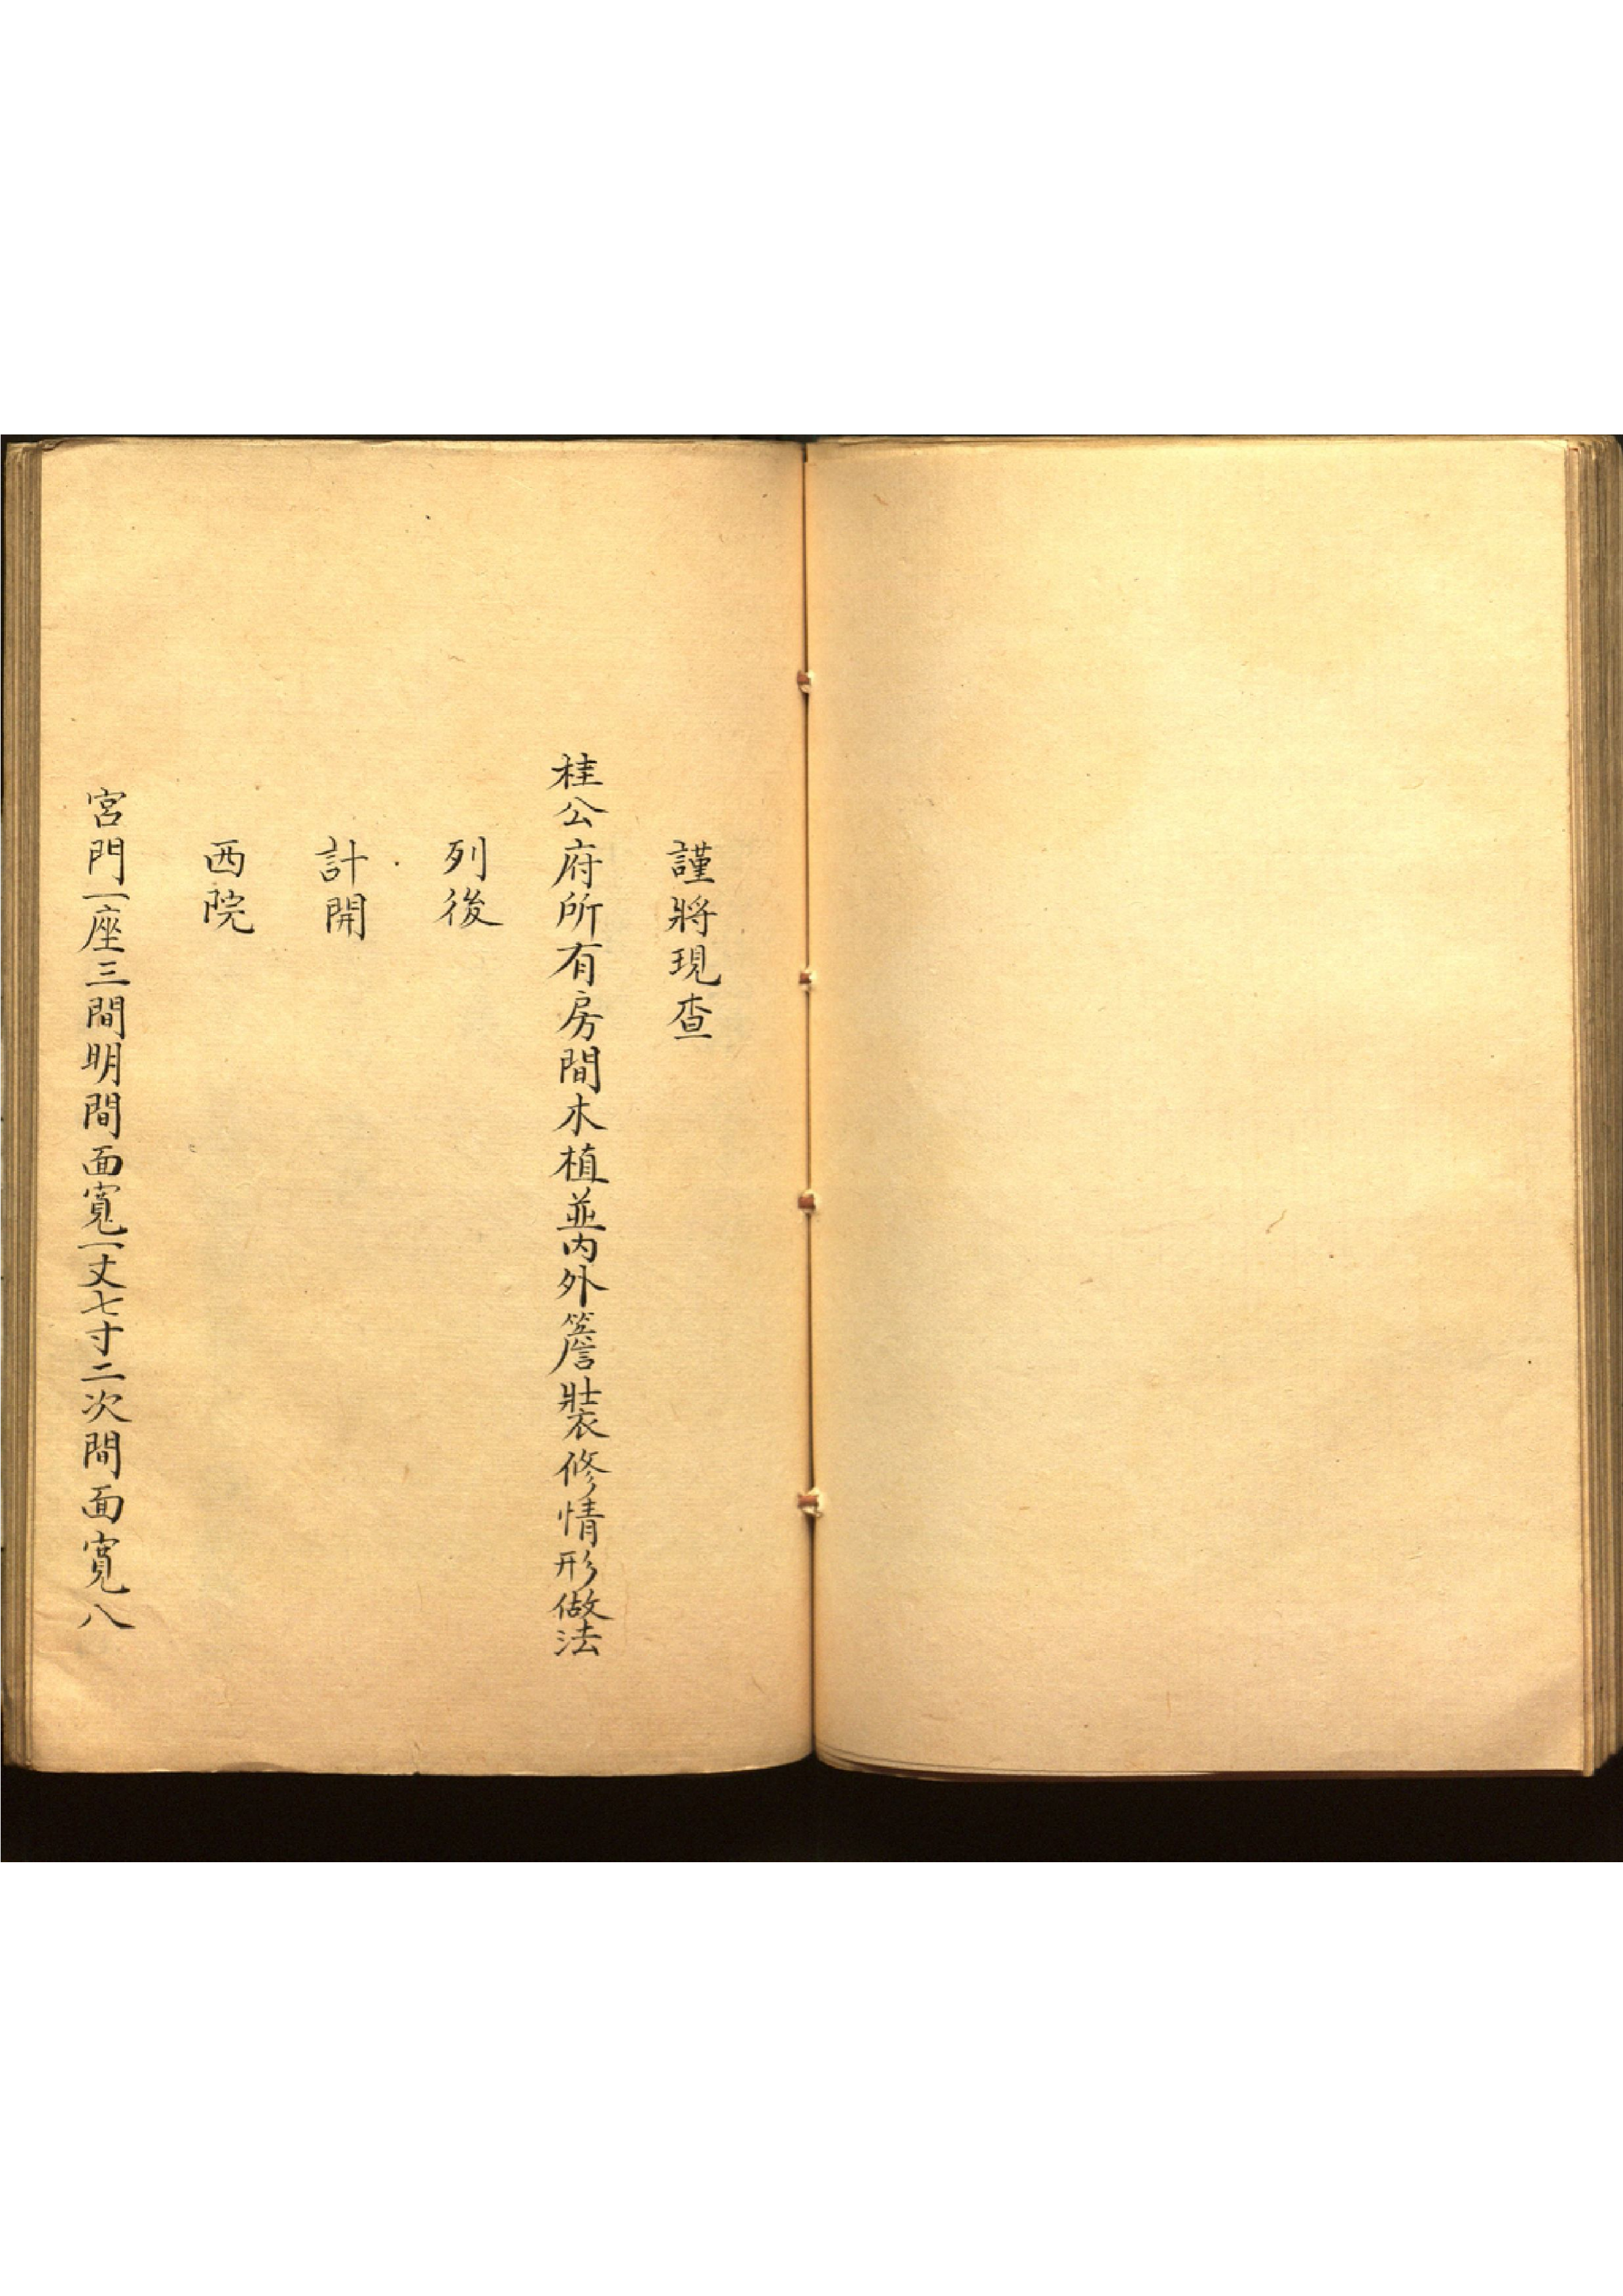 謹將現查
桂公府所有房間木植並内外簷裝修情形做法
列後
計開
西院
宮門一座三間明間面寬一丈七寸二次間面寬八